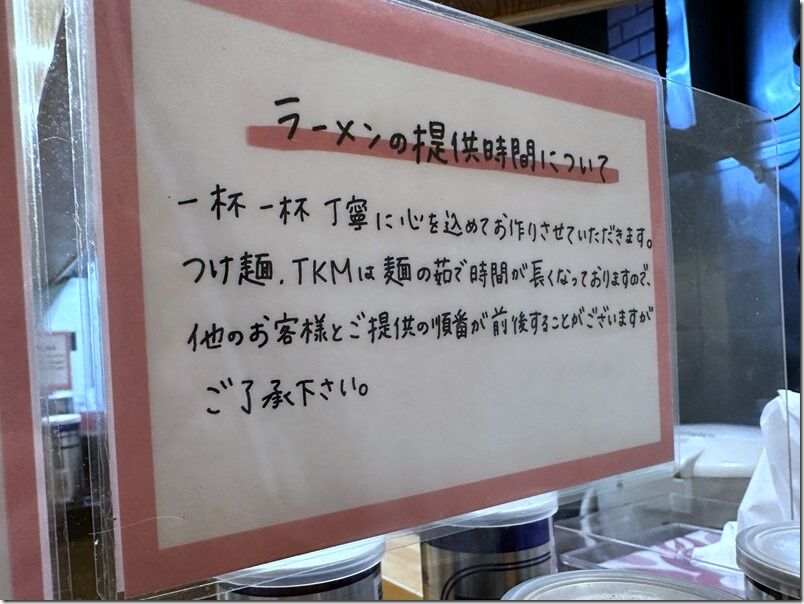 ラーメンの提供時間について
一杯一杯丁寧に心を込めてお作りさせていただきます。
つけ麺、TKMは麺の茹で時間が長くなっておりますので、
他のお客様とご提供の順番が前後することがございますが
ご了承下さい。